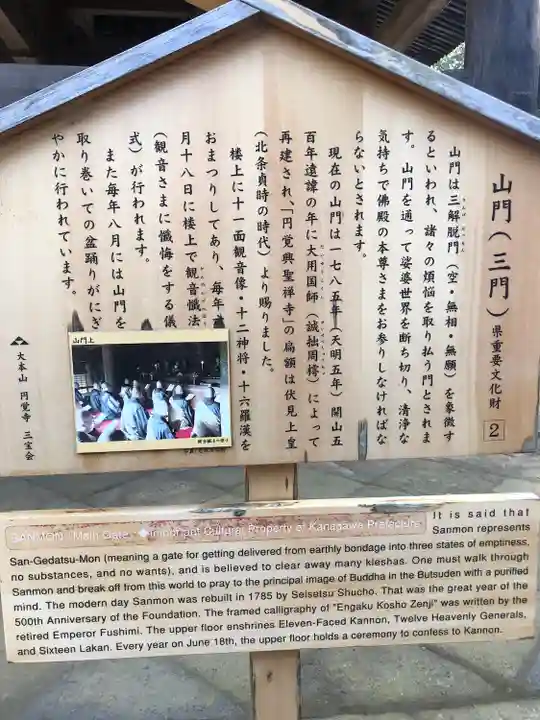 山門（三門） 県重要文化財 2
さんげだつもん
山門は三解脱門（空・無相・無願）を象徴す
るといわれ、諸々の煩悩を取り払う門とされま
す。山門を通って娑婆世界を断ち切り、清浄な
気持ちで佛殿の本尊さまをお参りしなければな
らないとされます。
現在の山門は一七八五年（天明五年）開山五
百年遠諱の年に大用国師（誠拙周樗）によって
再建され、「円覚興聖禅寺」の扁額は伏見上皇
（北条貞時の時代）より賜りました。
楼上に十一面観音像・十二神将・十六羅漢を
おまつりしてあり、毎年
月十八日に楼上で観音懺法
（観音さまに懺悔をする儀
式）が行われます。
また毎年八月には山門を
取り巻いての盆踊りがにぎ
やかに行われています。
大本山 円覚寺 三宝会
山門上
SANMON Main Gate Important Cultural Property of Kanagawa Prefecture It is said that
Sanmon represents
San-Gedatsu-Mon (meaning a gate for getting delivered from earthly bondage into three states of emptiness,
no substances, and no wants), and is believed to clear away many kleshas. One must walk through
Sanmon and break off from this world to pray to the principal image of Buddha in the Butsuden with a purified
mind. The modern day Sanmon was rebuilt in 1785 by Seisetsu Shucho. That was the great year of the
500th Anniversary of the Foundation. The framed calligraphy of "Engaku Kosho Zenji" was written by the
retired Emperor Fushimi. The upper floor enshrines Eleven-Faced Kannon, Twelve Heavenly Generals,
and Sixteen Lakan. Every year on June 18th, the upper floor holds a ceremony to confess to Kannon.